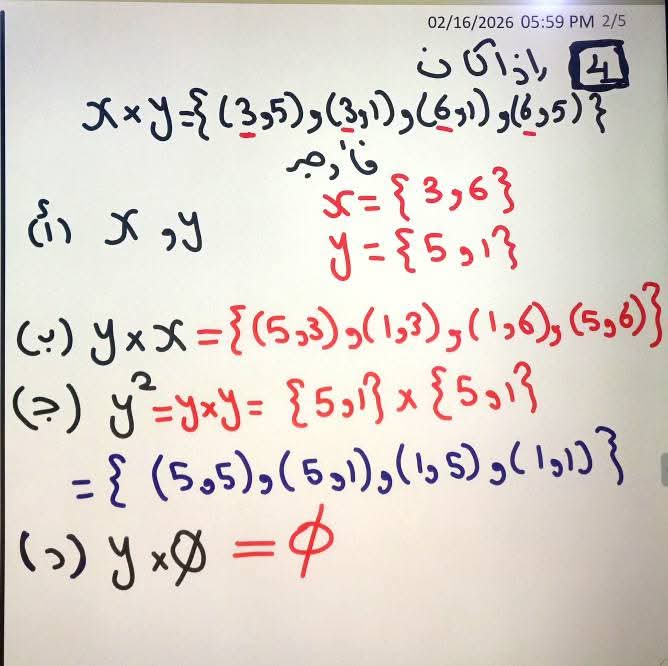 02/16/2026 05:59 PM 2/5
4 إذا كان
x×y={(3,5),(3,1),(6,1),(6,5)}
فأوجد
x={3,6}
(أ) x,y
y={5,1}
(ب) y×x={(5,3),(1,3),(1,6),(5,6)}
(ج) y²=y×y={5,1}×{5,1}
={(5,5),(5,1),(1,5),(1,1)}
(د) y×Ø=ϕ